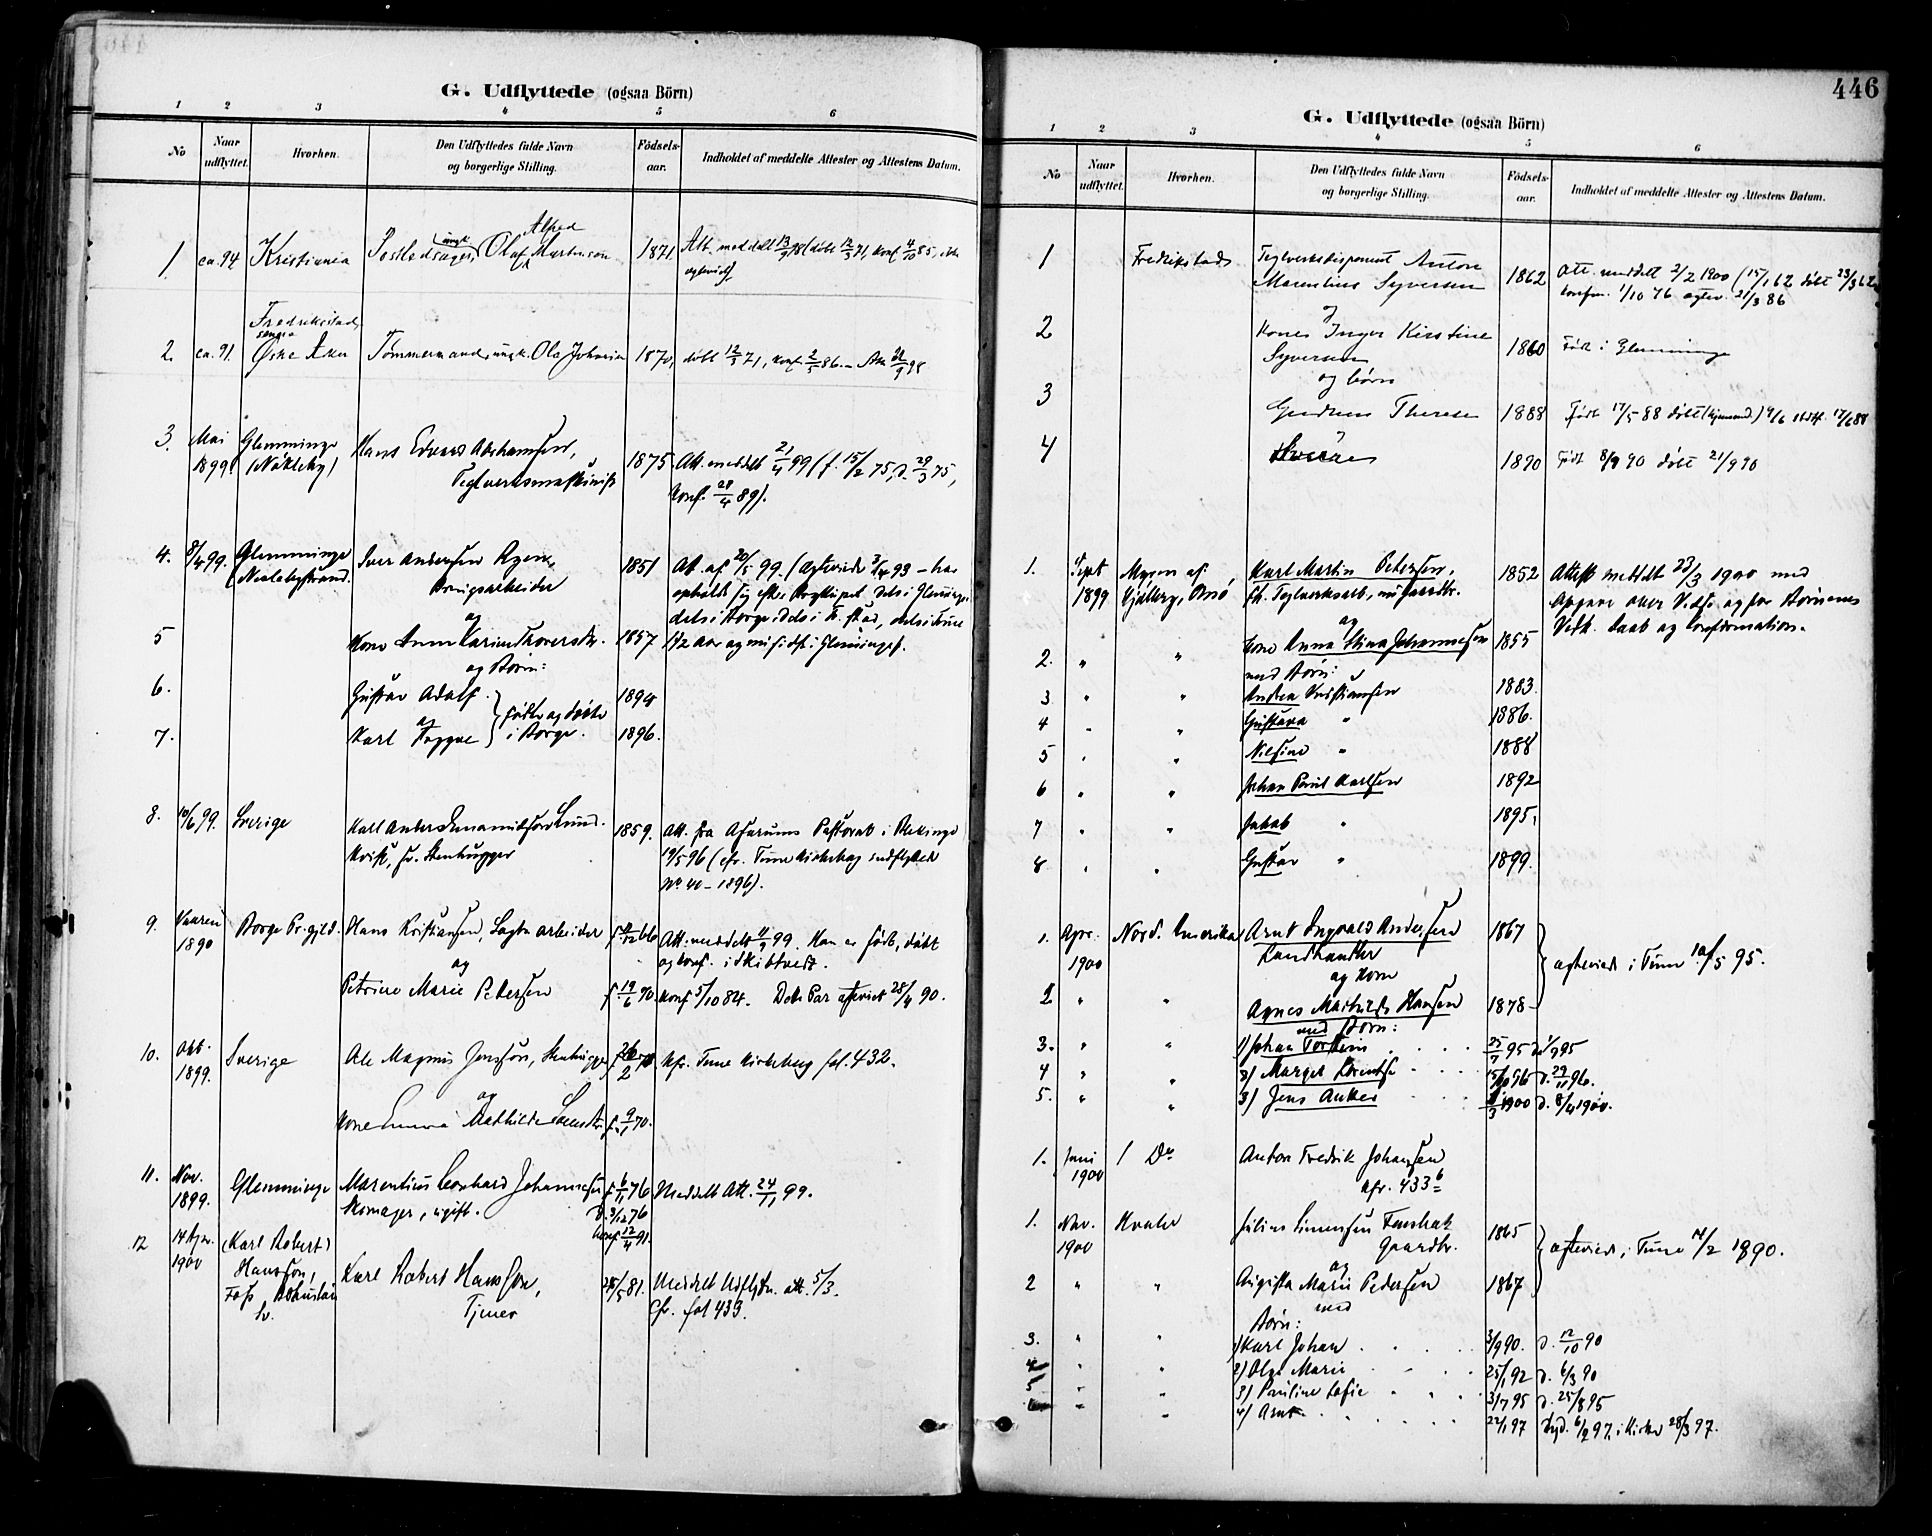 G. Udflyttede (ogsaa Börn)
1 2 3 4 5 6
No
Naar udflyttet.
Hvorhen.
Den Udflyttedes fulde Navn og borgerlige Stilling.
Födsels-aar.
Indholdet af meddelte Attester og Attestens Datum.
1 ca. 94 Kristiania Olaf Alfred Martinsen 1871. Att. meddelt 13/9 98 (döbt 12/3 71, konf. 4/10 85, ikke
2. ca. 91. Fredrikstad,
senere
Østre Aker Tømmermand, ungk. Ola Johnsen 1870, döbt 12/3 71, konf. 2/5 86.
3 Mai Glemminge Hans Edvard Abrahamsen,
1899. (Nökleby) Teglverksmaskinist 1875 Att. meddelt 21/4 99 (f. 15/2 75, d. 29/3 75,
konf. 28/4 89).
4. 8/4 99. Glemminge Iver Andersen Ryen, 1851 Att. af 20/5 99. (Egteviet 3/4 93 – har
Brugsarbeider
og dels i Borge, dels i Fr.stad, dels i Tune
5 Kone Anne Karine Thoresdtr. 1857 1 1/2 Aar og nu sidst i Glemminge).
og Börn:
6. Gustav Adolf 1894
og födte og döbte
7. Karl Trygve i Borge. 1896.
8. 10/6 99. Sverige Karl Anders Emanuelsson Lund. 1859. Att. fra Asarums Pastorat i Blekinge
Stenhugger 19/5 96 (cfr. Tune Kirkebog indflyttede
No 40 – 1896).
9. Vaaren Borge Pr.gjeld. Hans Kristiansen, Sagbr.arbeider Att. meddelt 11/9 99. Han er födt, döbt
1890 og konf. i Skibtvedt.
og
Petrine Marie Petersen f. 19/6 70. konf. 5/10 84. Dette Par egteviet 28/4 90.
10. Okt. Sverige Ole Magnus Jonsson, Stenhugger Kfr. Tune Kirkebog fol. 432.
1899.
og
Kone Emma Mathilde f. 9/1 70.
11. Nov. Glemminge Marentius Leonhard Johannesen f. 6/11 76 Meddelt Att. 24/11 99.
1899. Skomager, ugift. d. 3/12 76
konf. 12/4 91.
12 14 Apr. (Karl Robert)
1900 Hansson, Karl Robert Hansson, 25/5 81. Meddelt Udflytn. att. 5/3.
Tjener Cfr. fol 433.
446
G. Udflyttede (ogsaa Börn)
1 2 3 4 5 6
No
Naar udflyttet.
Hvorhen.
Den Udflyttedes fulde Navn og borgerlige Stilling.
Födsels-aar.
Indholdet af meddelte Attester og Attestens Datum.
1 Fredrikstad Teglverksdisponent Anton
Marentius Syversen 1862 Att. meddelt 2/2 1900 (15/1 62 döbt 23/3 62
konfirm. 1/10 76 egtev. 21/3 86
og
2 Kone Inger Kirstine
Syversen 1860 Födt i Glemminge
og börn
3 Gudrun Therese 1888 Födt 17/5 88 döbt (hjemmed.) 9/6 stadf. 17/6 88
4 1890 Födt 8/9 90 döbt 21/9 90
1. Sept Karl Martin Petersen, 1852 Attest meddelt 23/3 1900 med
1899 Kjölberg, Onsö fh. Teglverksarb., nu gaardbr. Opgave over Vielse og for Börnenes
og Vedk. Daab og Confirmation.
2. " " Kone Anna Stina Johannesen 1855
med Börn:
3 " " Andrea Kristiansen 1883.
4 " " Gustava " 1886.
5 " " Nilsine " 1888
6 " " Johan Emil Karlsen 1892
7 " " Jakob " 1895.
8 " " Gustav " 1899.
1. Apr. Nord. Amerika Arnt Ingvald Andersen 1867
1900 Landhandler egteviede i Tune 10/5 95.
og Kone
2 " " Agnes Mathilde Hansen 1878
med Börn:
3. " " 1) Johan Torstein 25/7 95 d. 1/9 95
4 " " 2) Margit 15/10 96 d. 29/11 96.
5. " " 3) Jens Anker 1900 d. 8/4 1900.
1. Juni Do Anton Fredrik Johansen
1900 cfr. 433 b
1. Nov. Hvaler Julius Simensen 1865
1900 Gaardbr. egteviede i Tune 14/2 1890.
og
2 " " Augusta Marie Pedersen 1867
med
Börn:
3. " " 1) Karl Johan 3/9 90. d. 12/10 90
4 " " 2) Olga Marie 25/1 92 d. 6/3 90
5 " " 3) Pauline Sofie 31/7 95 d. 25/8 95
" " 4) Arnt 22/1 97 Hjd. 6/2 97, i Kirke 28/3 97.